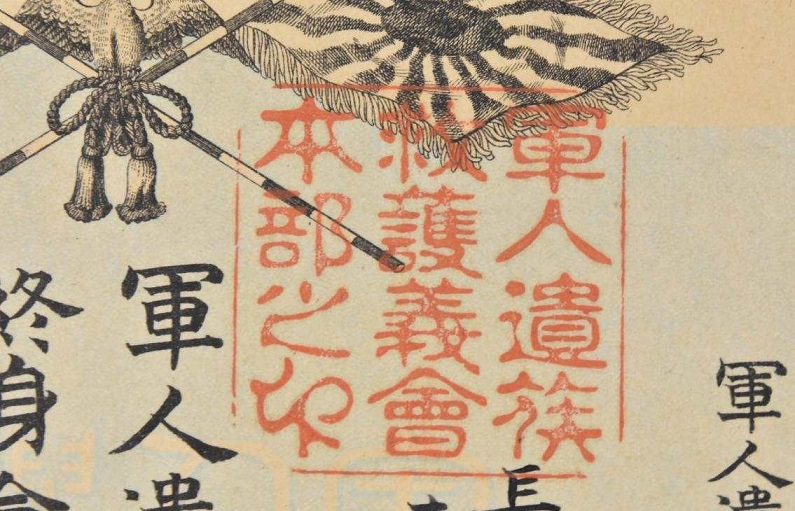 軍人遺
軍人遺族
救護義會
本部之印
長
軍人遺
終身會